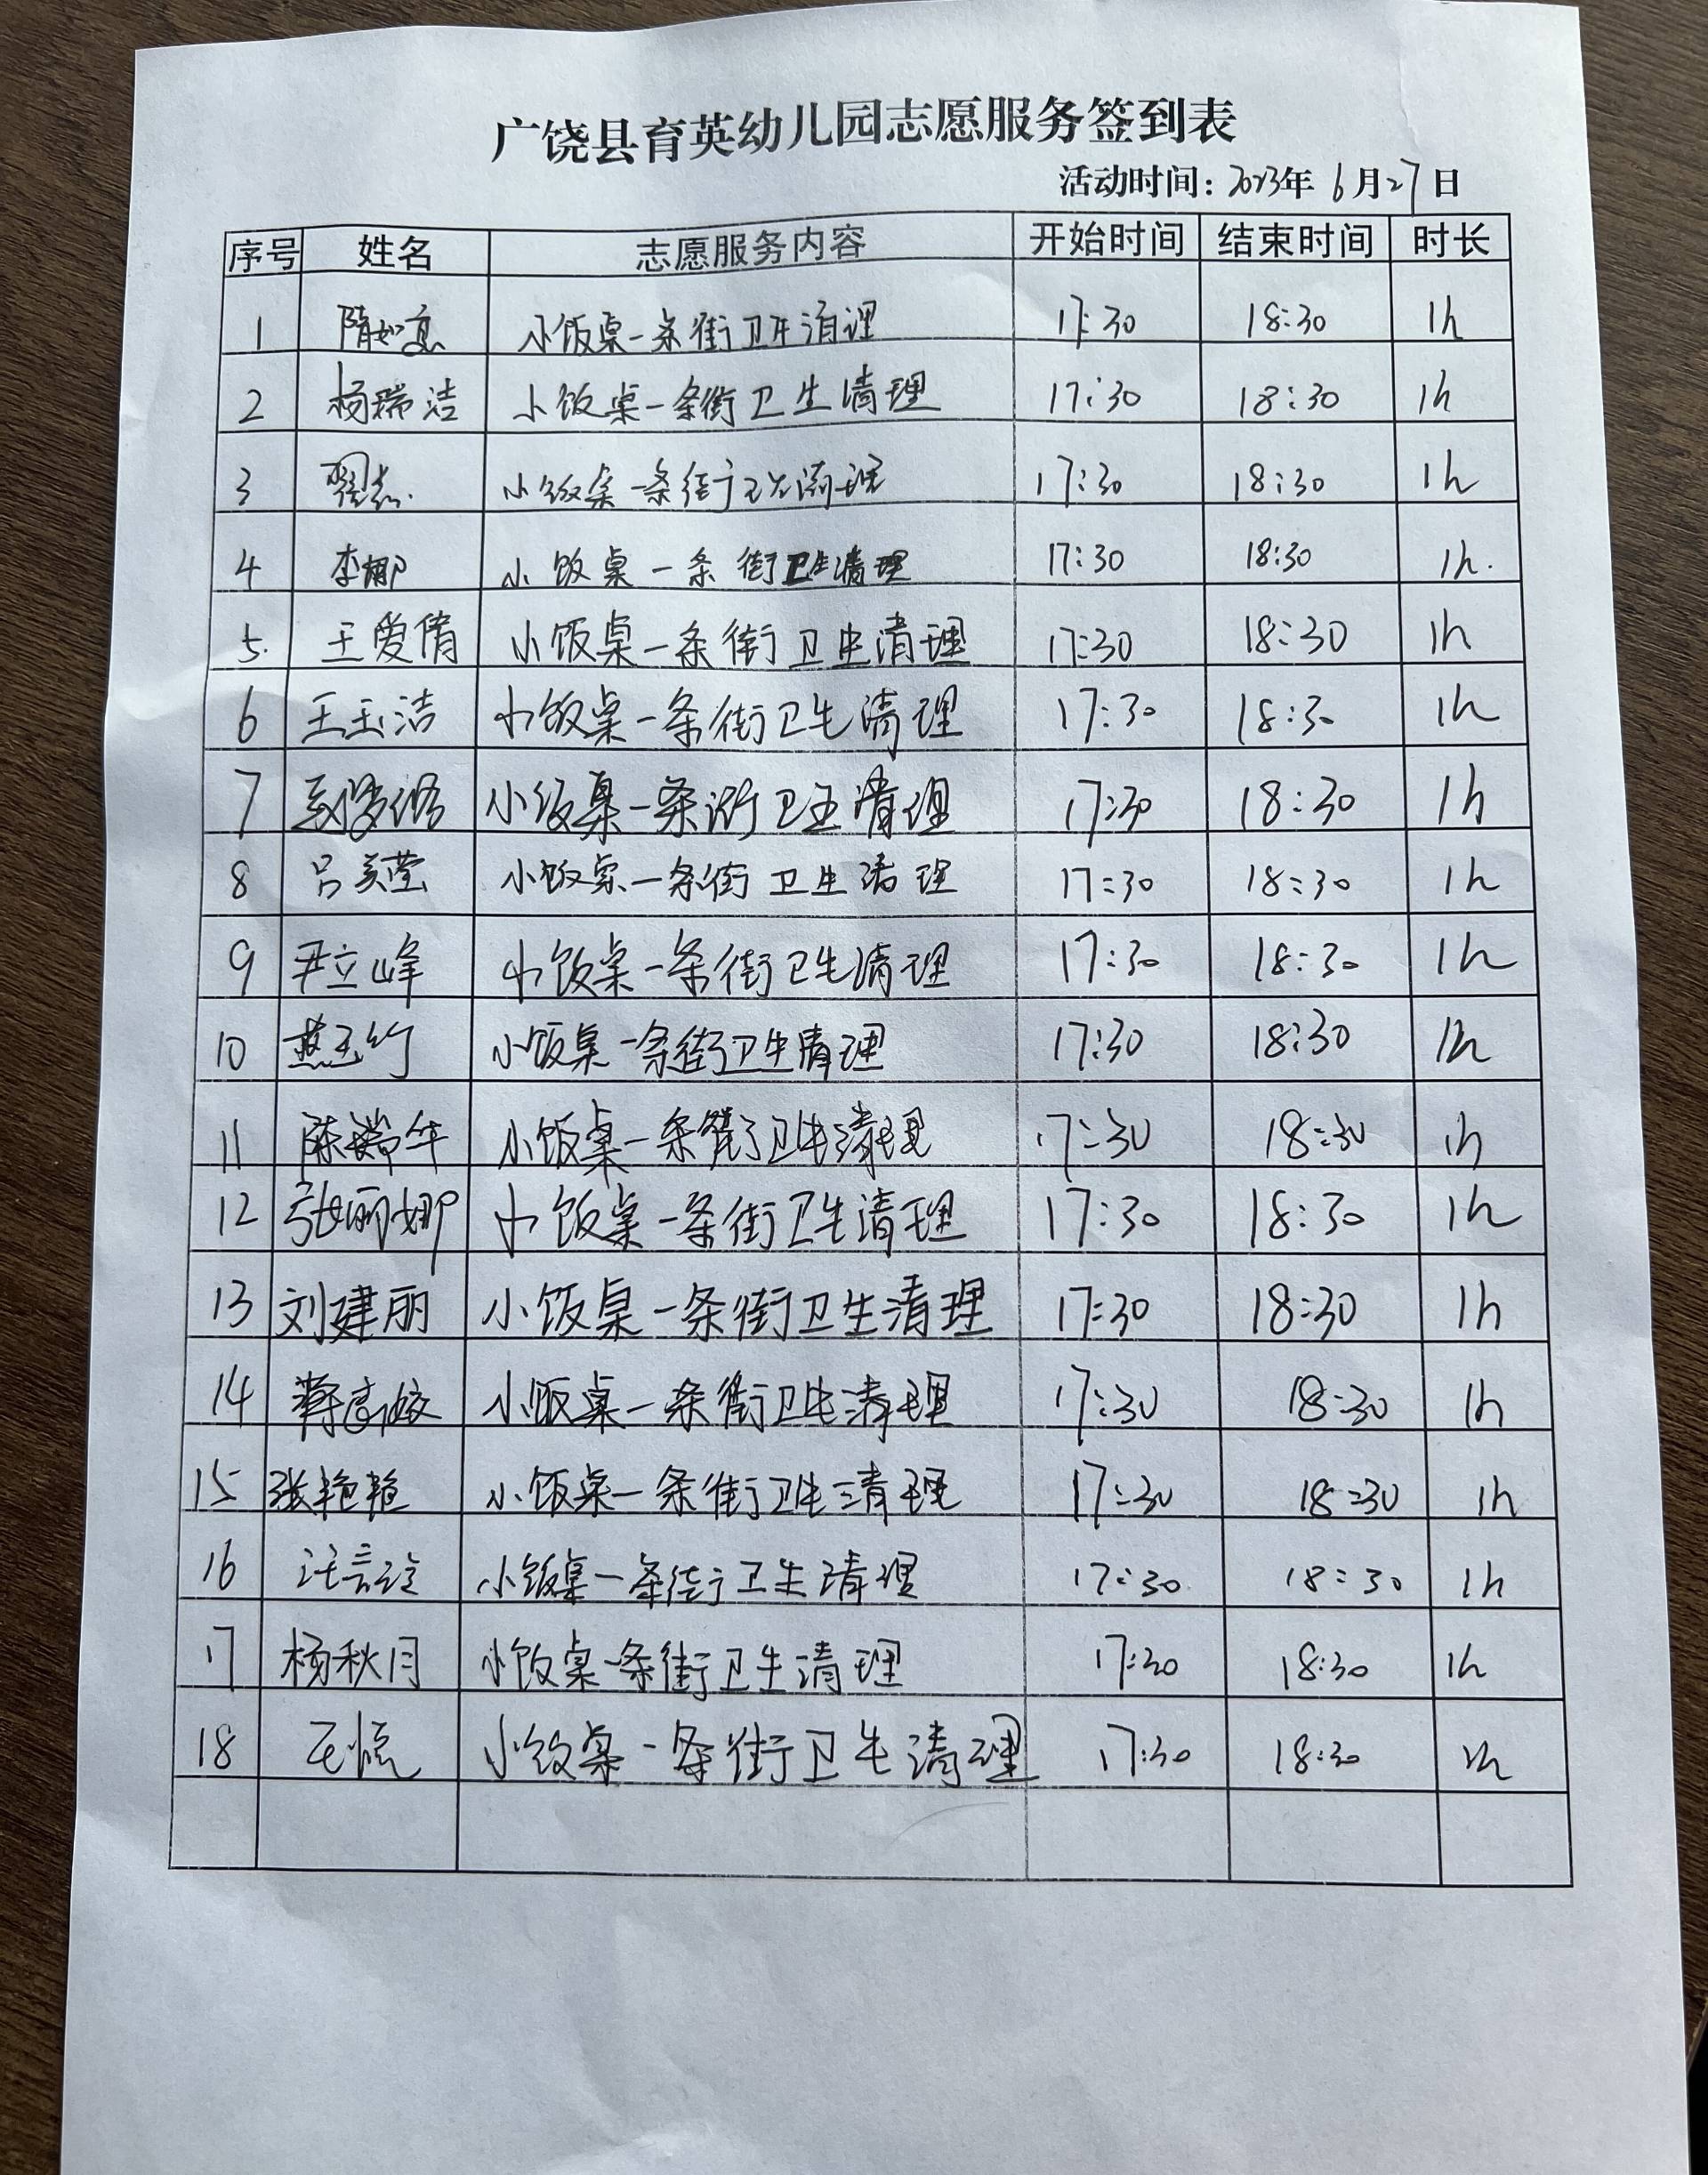 广饶县育英幼儿园志愿服务签到表
活动时间：2023年 6月27日
序号 姓名 志愿服务内容 开始时间 结束时间 时长
1 隋如意 小饭桌一条街卫生清理 17:30 18:30 1h
2 杨瑞洁 小饭桌一条街卫生清理 17:30 18:30 1h
3 小饭桌一条街卫生清理 17:30 18:30 1h
4 李娜 小饭桌一条街卫生清理 17:30 18:30 1h.
5. 王爱倩 小饭桌一条街卫生清理 17:30 18:30 1h
6 王玉洁 小饭桌一条街卫生清理 17:30 18:30 1h
7 小饭桌一条街卫生清理 17:30 18:30 1h
8 吕美莹 小饭桌一条街卫生清理 17:30 18:30 1h
9 尹立峰 小饭桌一条街卫生清理 17:30 18:30 1h
10 燕玉竹 小饭桌一条街卫生清理 17:30 18:30 1h
11 陈瑞华 小饭桌一条街卫生清理 17:30 18:30 1h
12 张丽娜 小饭桌一条街卫生清理 17:30 18:30 1h
13 刘建丽 小饭桌一条街卫生清理 17:30 18:30 1h
14 小饭桌一条街卫生清理 17:30 18:30 1h
15 张艳艳 小饭桌一条街卫生清理 17:30 18:30 1h
16 小饭桌一条街卫生清理 17:30 18:30 1h
17 杨秋月 小饭桌一条街卫生清理 17:30 18:30 1h
18 小饭桌一条街卫生清理 17:30 18:30 1h